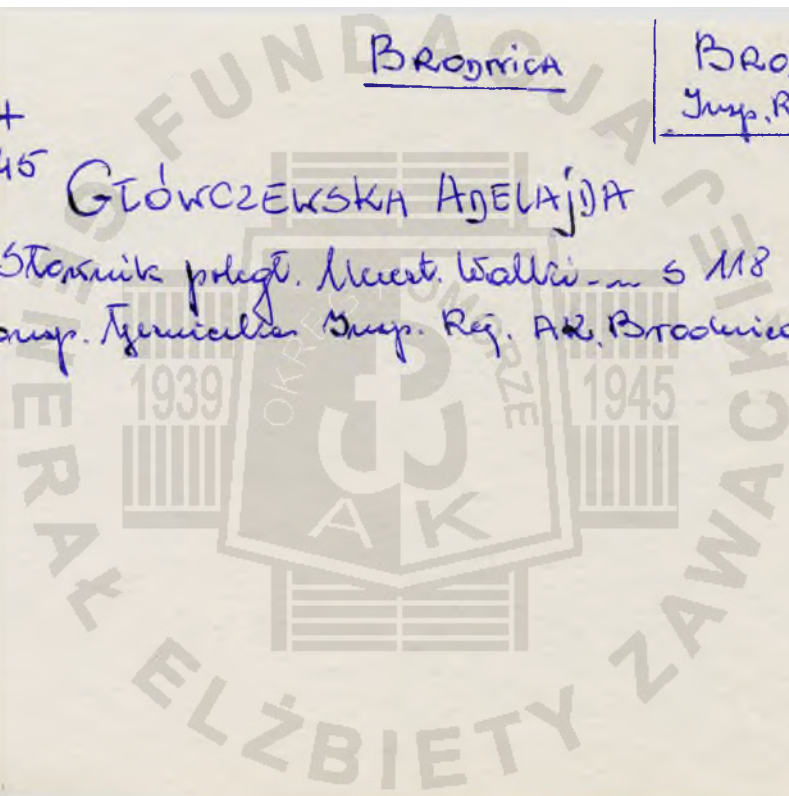 BRODNICA BRO
Insp. R
+
45
GŁÓWCZEWSKA ADELAJDA
Słownik poległ. Uczest. Walki --- s 118
Insp. Rej. AK. Brodnica
FUNDACJA GENERAŁ ELŻBIETY ZAWACKIEJ
OKRĘG POMORZE
1939 1945
AK